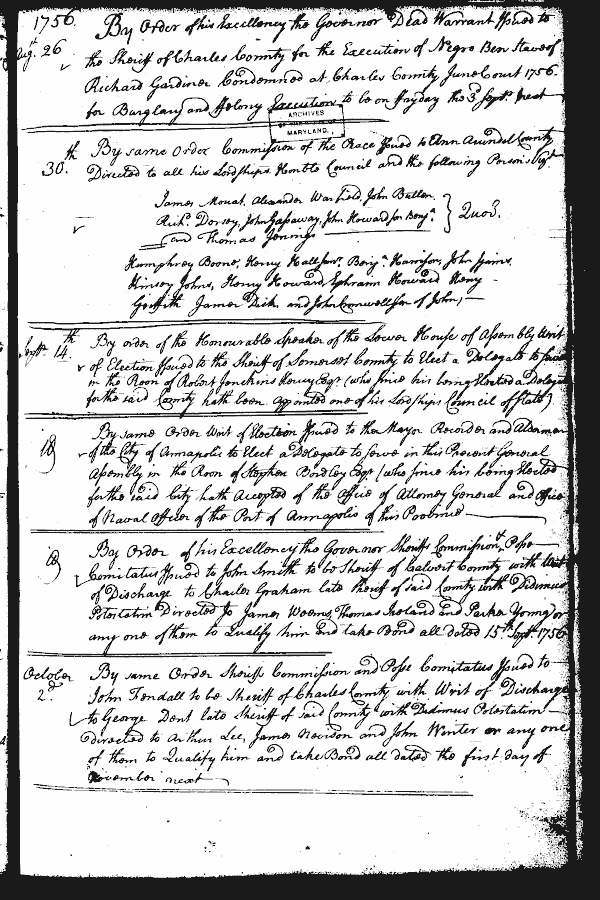 1756.
Augt. 26
By Order of his Excellency the Governor Dead Warrant Issued to
the Sheriff of Charles County for the Execution of Negro Ben Slave of
Richard Gardiner Condemned at Charles County June Court 1756.
for Burglary and Felony Execution to be on fryday the 3d. Sept. next
ARCHIVES
MARYLAND.
30.th
By same Order Commission of the Peace Issued to Ann Arundel County
Directed to all his Lordships Honble Council and the following Persons Vizt.
James Mouat, Alexander Warfield, John Bullen
Richd. Dorsey, John Gassaway, John Howard son Benja.
and Thomas Jenings
Quor.
Humphrey Boone, Henry Hall Junr. Benja. Harrison, John Jiams,
Kinsey Johns, Henry Howard, Ephraim Howard Henry
Griffith James Dick and John Cromwell son of John,
Sept. 14.th
By order of the Honourable Speaker of the Lower House of Assembly Writ
of Election Issued to the Sheriff of Somerset County to Elect a Delegate to
in the Room of Robert Jenckins Henry Esqr. (who since his being Elected a Delegate
for the said County hath been appointed one of his Lordships Council of State)
By same Order Writ of Election Issued to the Mayor Recorder and Aldermen
of the City of Annapolis to Elect a Delegate to serve in this Present General
Assembly in the Room of Stephen Bordley Esqr. (who since his being Elected
for the said City hath Accepted of the Office of Attorney General and Office
of Naval Officer of the Port of Annapolis of this Province
By Order of his Excellency the Governor Sheriffs Commission, Posse
Comitatus Issued to John Smith to be Sheriff of Calvert County with Writ
of Discharge to Charles Graham late Sheriff of said County with Didimus
Potestatim Directed to James Weems, Thomas Ireland and Parker Young or
any one of them to Qualify him and take Bond all dated 15.th Sept. 1756
October 2.d
By same Order Sheriffs Commission and Posse Comitatus Issued to
John Fendall to be Sheriff of Charles County with Writ of Discharge
to George Dent late Sheriff of said County with Dedimus Potestatim
directed to Arthur Lee, James Nevison and John Winter or any one
of them to Qualify him and take Bond all dated the first day of
November next